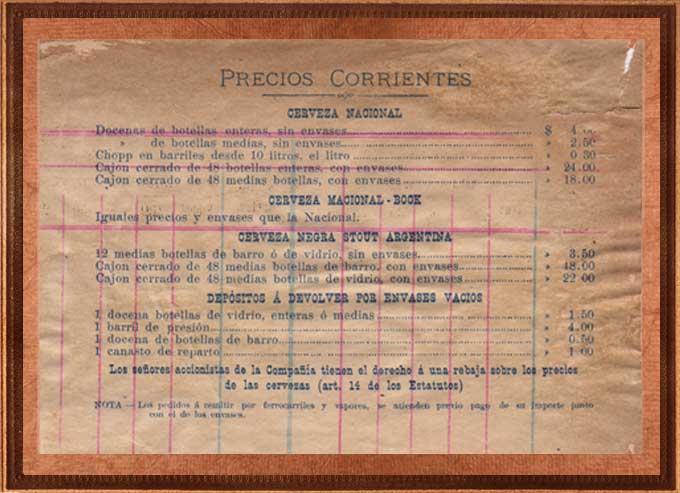 PRECIOS CORRIENTES
CERVEZA NACIONAL
Docenas de botellas enteras, sin envases $ 4.00
» de botellas medias, sin envases » 2.50
Chopp en barriles desde 10 litros, el litro » 0 30
Cajon cerrado de 48 botellas enteras, con envases » 24.00
Cajon cerrado de 48 medias botellas, con envases » 18.00
CERVEZA MACIONAL - BOCK
Iguales precios y envases que la Nacional.
CERVEZA NEGRA STOUT ARGENTINA
12 medias botellas de barro ó de vidrio, sin envases » 3.50
Cajon cerrado de 48 medias botellas de barro, con envases » 18.00
Cajon cerrado de 48 medias botellas de vidrio, con envases » 22 00
DEPÓSITOS Á DEVOLVER POR ENVASES VACIOS
1 docena botellas de vidrio, enteras ó medias » 1.50
1 barril de presión » 4.00
1 docena de botellas de barro » 0.50
1 canasto de reparto » 1 00
Los señores accionistas de la Compañia tienen el derecho á una rebaja sobre los precios
de las cervezas (art. 14 de los Estatutos)
NOTA — Los pedidos á remitir por ferrocarriles y vapores, se atienden previo pago de su importe junto
con el de los envases.